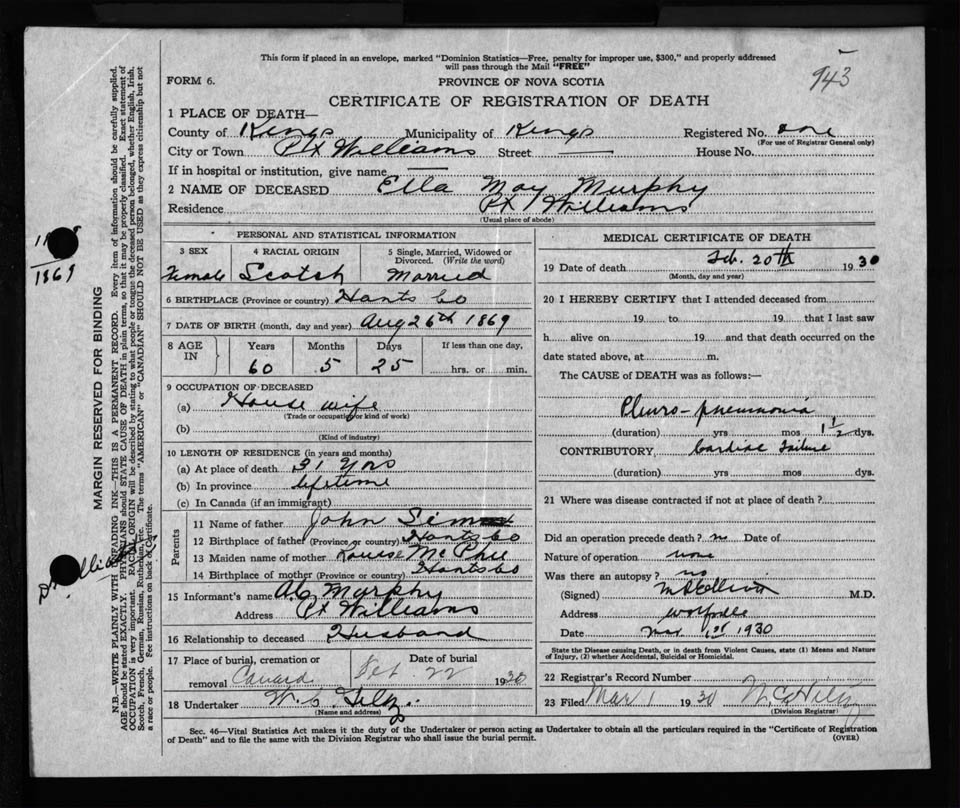 This form if placed in an envelope, marked "Dominion Statistics—Free, penalty for improper use, $300," and properly addressed
will pass through the Mail "FREE"
943
FORM 6.
PROVINCE OF NOVA SCOTIA
CERTIFICATE OF REGISTRATION OF DEATH
1 PLACE OF DEATH—
County of Kings Municipality of Kings Registered No. one
(For use of Registrar General only)
City or Town Pt Williams Street House No.
If in hospital or institution, give name
2 NAME OF DECEASED Ella May Murphy
Residence Pt Williams
(Usual place of abode)
PERSONAL AND STATISTICAL INFORMATION
3 SEX 4 RACIAL ORIGIN 5 Single, Married, Widowed or
Divorced. (Write the word)
Female Scotch Married
6 BIRTHPLACE (Province or country) Hants Co
7 DATE OF BIRTH (month, day and year) Aug 26th 1869
8 AGE IN Years Months Days If less than one day,
60 5 25 hrs. or min.
9 OCCUPATION OF DECEASED
(a) House wife
(Trade or occupation or kind of work)
(b)
(Kind of industry)
10 LENGTH OF RESIDENCE (in years and months)
(a) At place of death 31 yrs
(b) In province lifetime
(c) In Canada (if an immigrant)
Parents
11 Name of father John
12 Birthplace of father (Province or country) Hants Co
13 Maiden name of mother Louise McPhee
14 Birthplace of mother (Province or country) Hants Co
15 Informant's name A.C. Murphy
Address Pt Williams
16 Relationship to deceased Husband
17 Place of burial, cremation or Date of burial
removal Canard Feb 22 1930
18 Undertaker W. C.
(Name and address)
MEDICAL CERTIFICATE OF DEATH
19 Date of death Feb. 20th 1930
(Month, day and year)
20 I HEREBY CERTIFY that I attended deceased from
19 to 19 that I last saw
h alive on 19 and that death occurred on the
date stated above, at m.
The CAUSE of DEATH was as follows:—
Pleuro-pneumonia
(duration) yrs mos 1 1/2 dys.
CONTRIBUTORY Cardiac failure
(duration) yrs mos dys.
21 Where was disease contracted if not at place of death?
Did an operation precede death? no Date of
Nature of operation none
Was there an autopsy? no
(Signed) M.D.
Address Wolfville
Date Mar 1st 1930
State the Disease causing Death, or in death from Violent Causes, state (1) Means and Nature
of Injury, (2) whether Accidental, Suicidal or Homicidal.
22 Registrar's Record Number
23 Filed Mar 1 1930
(Division Registrar)
Sec. 46—Vital Statistics Act makes it the duty of the Undertaker or person acting as Undertaker to obtain all the particulars required in the "Certificate of Registration
of Death" and to file the same with the Division Registrar who shall issue the burial permit.
(OVER)
1869
MARGIN RESERVED FOR BINDING
N.B.—WRITE PLAINLY WITH UNFADING INK—THIS IS A PERMANENT RECORD. Every item of information should be carefully supplied.
AGE should be stated EXACTLY. PHYSICIANS should STATE CAUSE OF DEATH in plain terms, so that it may be properly classified. Exact statement of
OCCUPATION is very important. RACIAL ORIGIN will be described by stating to what people or tongue the deceased person belonged, whether English, Irish,
Scotch, French, German, Russian, Ruthenian, etc. The terms "AMERICAN" or "CANADIAN" SHOULD NOT BE USED as they express citizenship but not
a race or people. See instructions on back of Certificate.